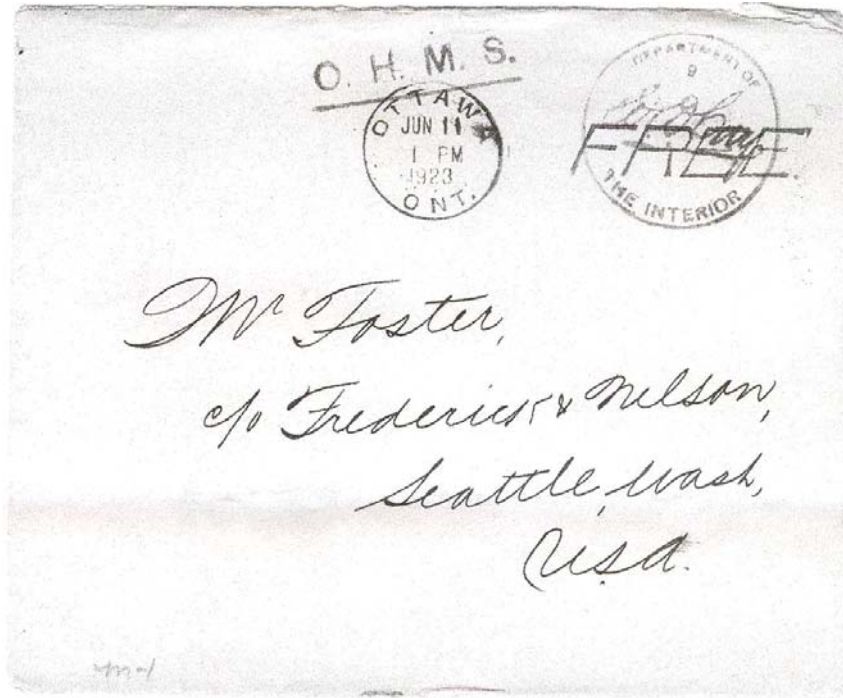 O. H. M. S.
OTTAWA
JUN 11
1 PM
1923
ONT.
DEPARTMENT OF
9
FREE
THE INTERIOR
Mr Foster,
c/o Frederick & Nelson,
Seattle, Wash,
USA.